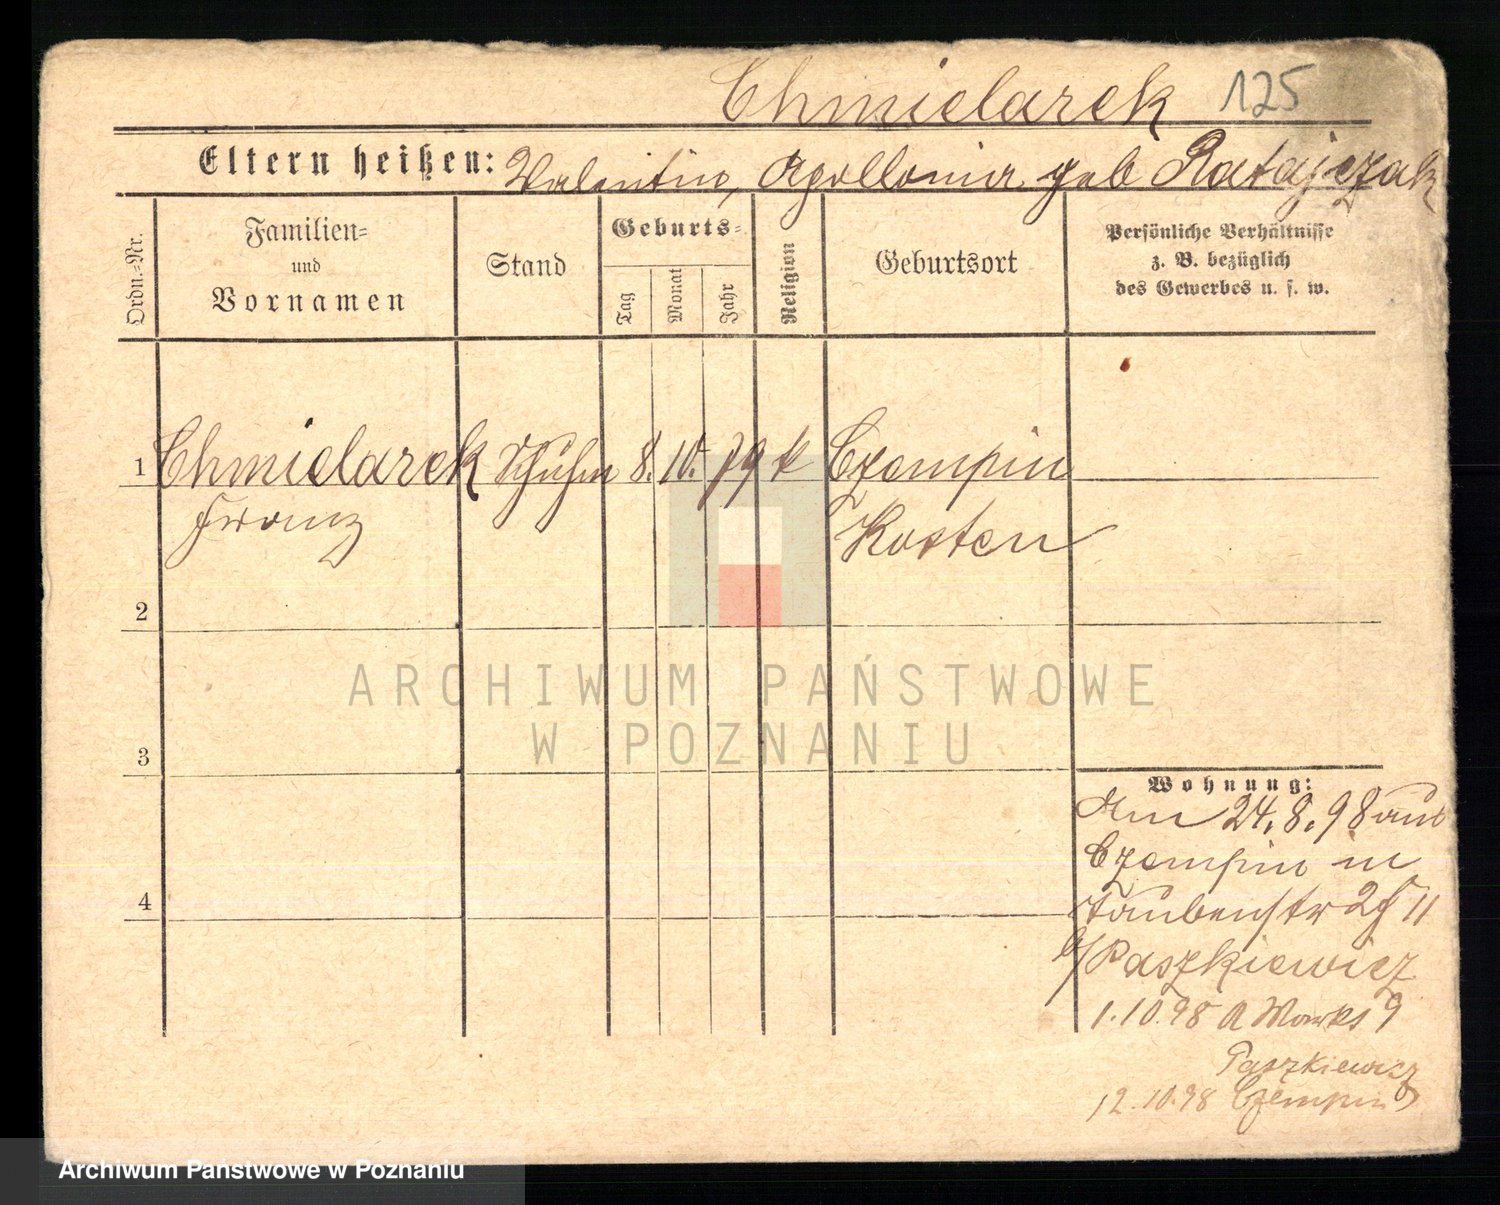 Chmielarek 125
Eltern heißen: Valentin, Apollonia geb Ratajczak
Ordn.-Nr.
Familien-
und
Vornamen
Stand
Geburts-
Tag
Monat
Jahr
Religion
Geburtsort
Persönliche Verhältnisse
z. B. bezüglich
des Gewerbes u. s. w.
1 Chmielarek Schuhm 8. 10. 79 k Czempin
Franz Kosten
2
3
4
ARCHIWUM PAŃSTWOWE
W POZNANIU
Wohnung:
Am 24.8.98 aus
Czempin in
Taubenstr 2 II
b/Paszkiewicz
1.10.98 A Markt 9
Paszkiewicz
12.10.98 Czempin
Archiwum Państwowe w Poznaniu